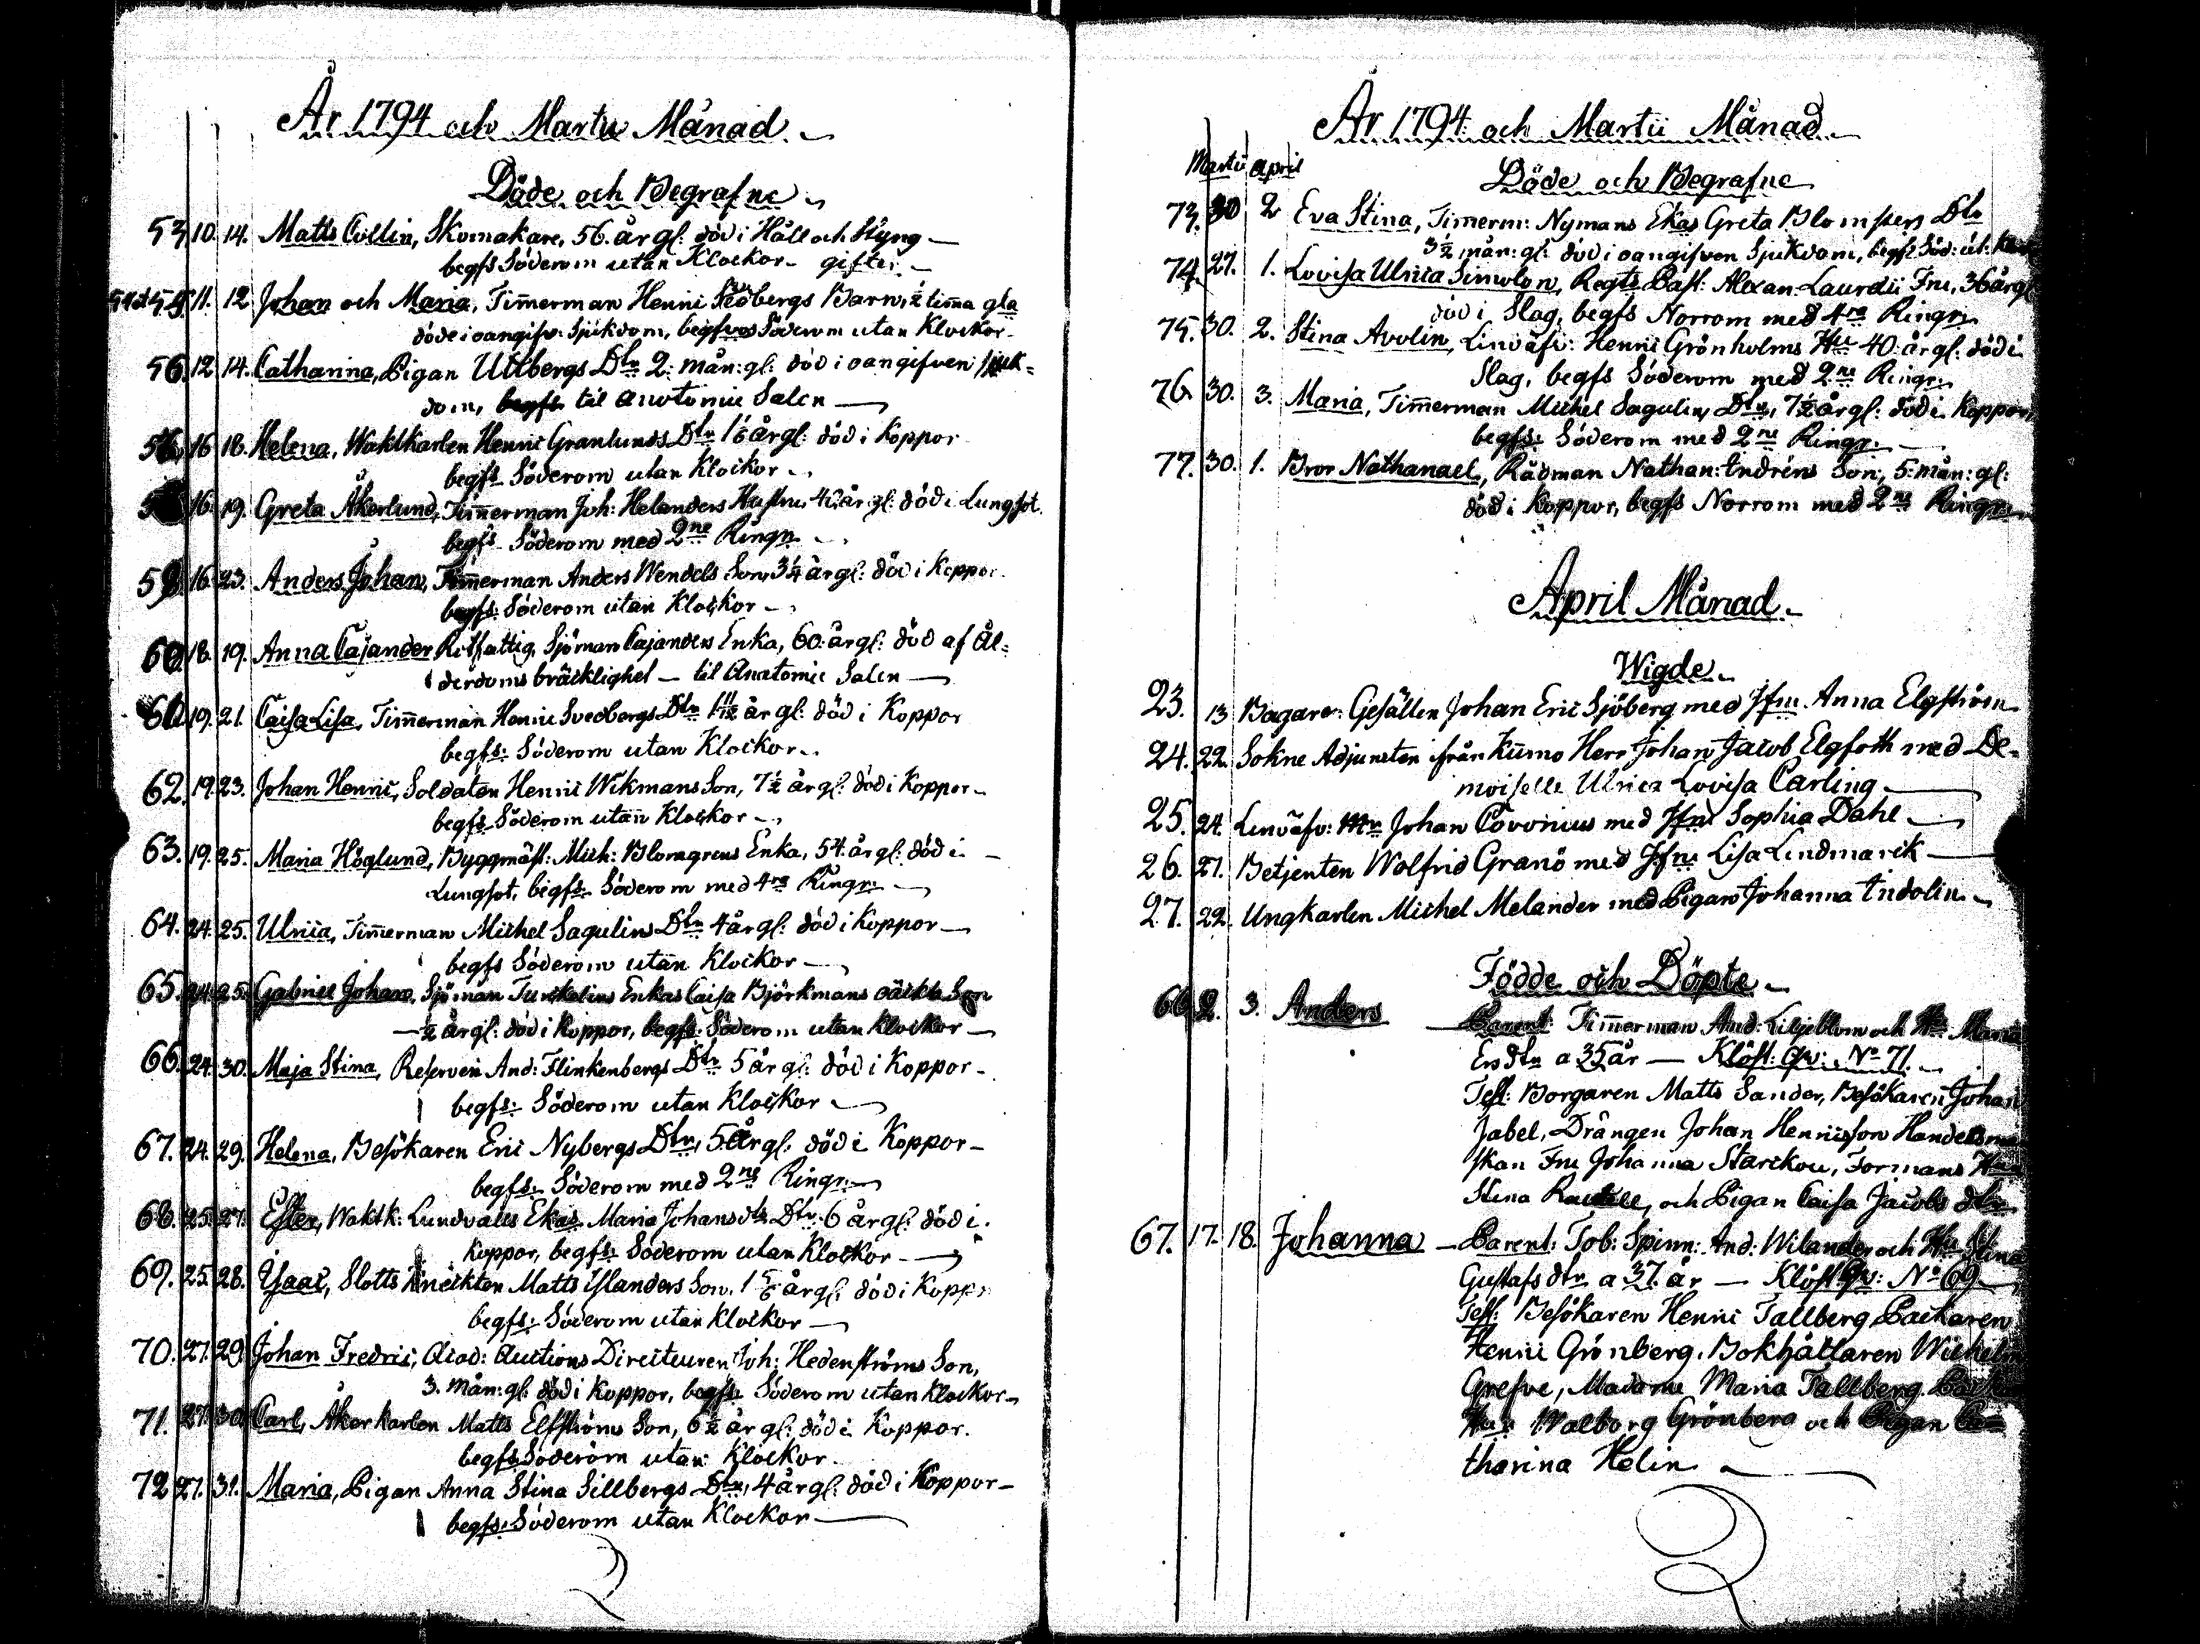 År 1794 och Martii Månad.
Döde och Begrafne
53. 10. 14. Matts Collin, Skomakare, 56. år gl: död i Håll och Styng
begfs Söderom utan Klockor gifter.
54 och 55 11. 12 Johan och Maria, Timmerman Henric Sjöbergs Barn, ½ timma gla
döde i oangifv: Sjukdom, begfvos Söderom utan Klockor
56. 12 14. Catharina, Pigan Utlbergs Dtr 2. mån: gl: död i oangifven sjuk=
dom, begfs til Anatomie Salen
16 18. Helena, Waktkarlen Henric Granlunds Dtr 1 1/6 år gl: död i Koppor
begfs Söderom utan Klockor
16 19. Greta Åkerlund, Timmerman Joh: Helanders Hustru, 42. år gl: död i Lungsot.
begfs Söderom med 2ne Ringn
59. 16 23. Anders Johan, Timmerman Anders Wendels Son, 3¼ år gl: död i Koppor.
begfs: Söderom utan Klockor
60 18. 19. Anna Cajander Rotfattig, Sjöman Cajanders Enka, 60. år gl: död af Ål=
derdoms bräcklighet – til Anatomie Salen
61. 19. 21. Caisa Lisa, Timmerman Henric Svedbergs Dtr 1 11/12 år gl: död i Koppor
begfs: Söderom utan Klockor
62. 19. 23. Johan Henric, Soldaten Henric Wikmans Son, 7½ år gl: död i Koppor
begfs Söderom utan Klockor
63. 19. 25. Maria Höglund, Byggmäst: Mich: Blomgrens Enka, 54. år gl: död i
Lungsot, begfs Söderom med 4ra Ringn:
64. 24. 25. Ulrica, Timmerman Michel Sagulins Dtr 4 år gl: död i Koppor
begfs Söderom utan Klockor
65. 24. 25. Gabriel Johan, Sjöman Turckelins Enkas Caisa Björkmans oäckta Son
½ år gl: död i Koppor, begfs: Söderom utan Klockor
66. 24. 30. Maja Stina, Reserven And: Flinkenbergs Dtr 5 år gl: död i Koppor
begfs: Söderom utan Klockor
67. 24. 29. Helena, Besökaren Eric Nybergs Dtr, 5. år gl: död i Koppor
begfs: Söderom med 2ne Ringn:
68. 25. 27. Ester, Waktk: Lundvalls Ekas Maria Johansdtr Dtr. 6 år gl: död i
Koppor, begfs: Söderom utan Klockor
69. 25. 28. Isaac, Slotts Knickten Matts Islanders Son, 1 5/6 år gl: död i Koppr
begfs: Söderom utan Klockor
70. 27. 29 Johan Fredric, Acad: Auctions Directeuren Joh: Hedenströms Son,
3. mån: gl: död i Koppor, begfs: Söderom utan Klockor
71. 27. 30. Carl, Åker karlen Matts Elfströms Son, 6½ år gl: död i Koppor.
begfs: Söderom utan Klockor.
72 27. 31. Maria, Pigan Anna Stina Sillbergs Dtr, 4 år gl: död i Koppor
begfs: Söderom utan Klockor
År 1794 och Martii Månad
Martii April
Döde och Begrafne
73. 30 2 Eva Stina, Timerm: Nymans Ekas Greta Blomsters Dtr
3½ mån: gl: död i oangifven Sjukdom, begfs Söd: ut: Klock
74. 27. 1. Lovisa Ulrica Simolon, Regts Past: Alexan: Laurdii Fru, 36 år gl
död i Slag, begfs Norrom med 4ra Ringn
75. 30. 2. Stina Avolin, Linväfv: Henric Grönholms Hu 40. år gl: död i
Slag, begfs Söderom med 2ne Ringn:
76 30. 3. Maria, Timmerman Michel Sagulins Dtr, 7½ år gl: död i Koppor,
begfs: Söderom med 2ne Ringn:
77. 30. 1. Bror Nathanael, Rådman Nathan: Indréns Son, 5. mån: gl:
död i Koppor, begfs Norrom med 2ne Ringn:
April Månad
Wigde
23. 13 Bagare: Gesällen Johan Eric Sjöberg med Jfru Anna Elgström
24. 22. Sokne Adjuncten ifrån Kumo Herr Johan Jacob Elgfoth med De=
moiselle Ulrica Lovisa Carling
25. 24. Linväfv: Mr Johan Covonius med Jfru Sophia Dahl
26. 27. Betjenten Wolfrid Granö med Jfru Lisa Lindmarck
27. 22. Ungkarlen Michel Melander med Pigan Johanna Indolin
Födde och Döpte
66 2. 3. Anders Parent: Timmerman And: Liljeblom och Hu Maria
Ersdtr a 35 år – Klöst: Qv: No 71.
Test: Borgaren Matts Sander, Besökaren Johan
Jabel, Drängen Johan Henricsson Handelsman
skan Fru Johanna Starckou, Formans Hu
Stina och Pigan Caisa Jacobs dtr
67. 17. 18. Johanna – Parent: Tob: Spinn: And: Wilander och Hu Stina
Gustafsdtr a 37. år – Klöst Qv: No 69
Test: Besökaren Henric Tallberg Packaren
Henric Grönberg. Bokhållaren Wilhelm
Grefve, Madame Maria Tallberg
Hu Walborg Grönberg och Pigan Ca=
tharina Helin